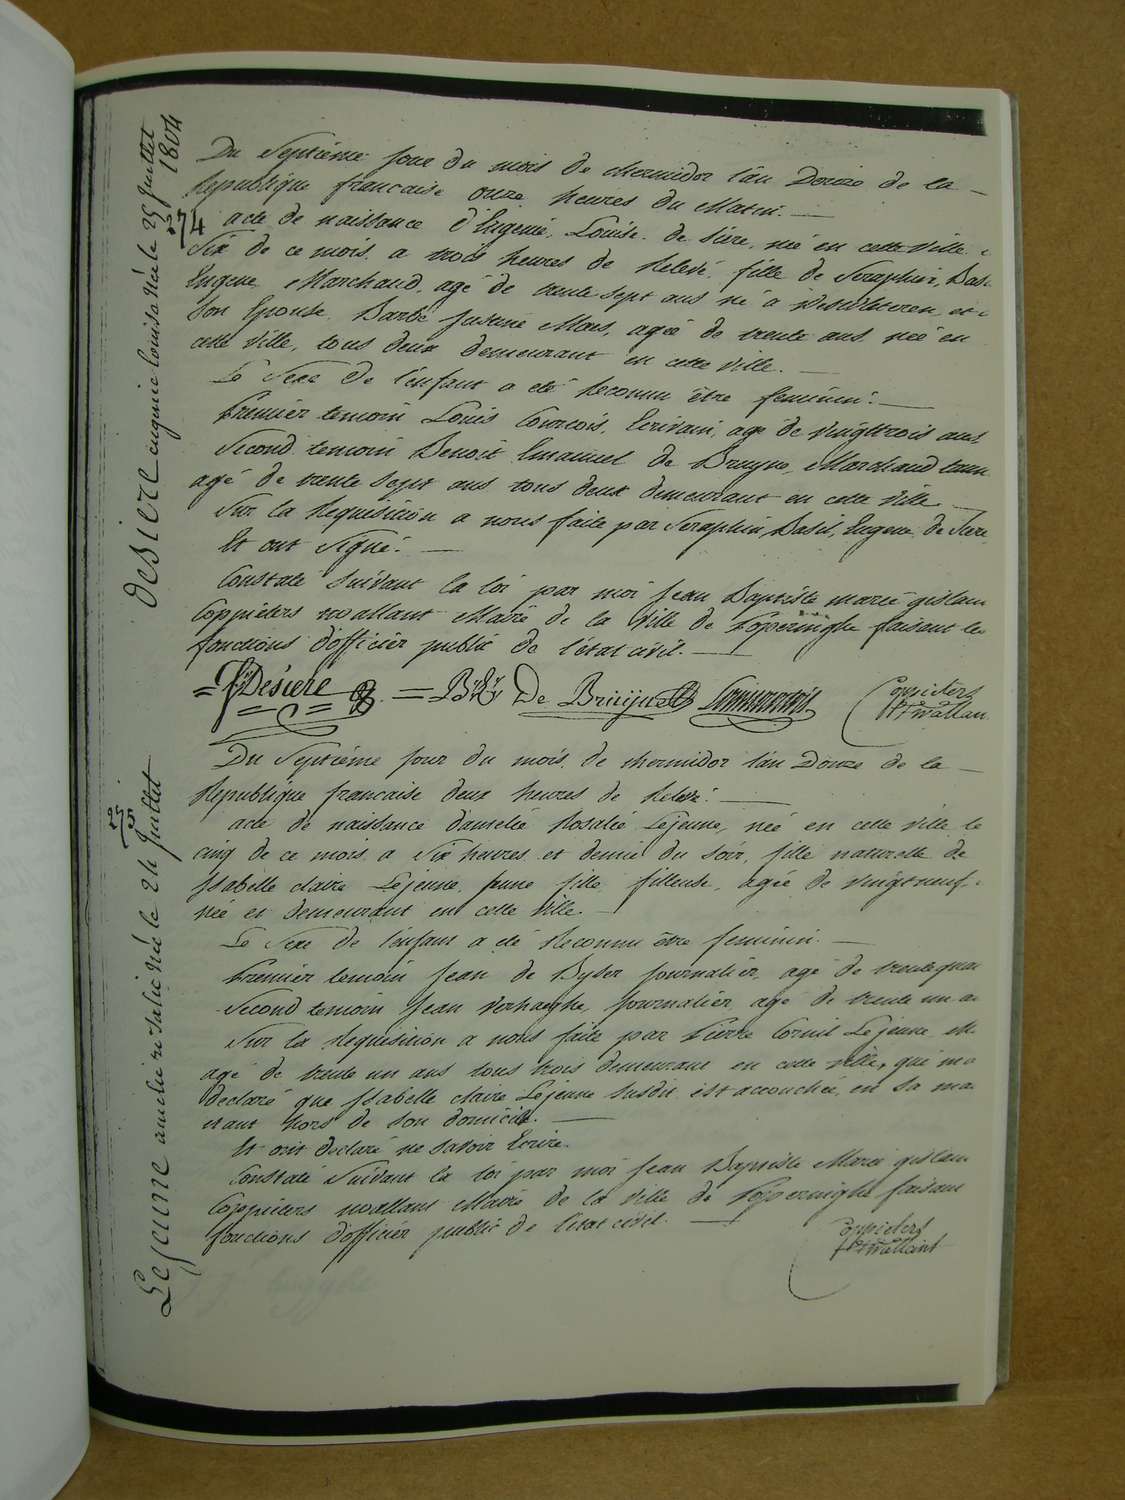 Desiere eugenie louise née le 25 Juillet
1804
274
Du Septiéme jour du mois de thermidor l'án Douze de la —
Republique francaise onze heures du Matin. —
acte de naissance d'Eugenié Louise de siere, née en cette ville
Six de ce mois a trois heures de Relevé, fille de Seraphin, Bas
Eugene Marchand, agé de trente sept ans né a et
Son Epouse Barbe Justine Maes, agée de trente ans née en
cette ville, tous deux demeurant en cette ville. —
Le Sexe de l'énfant a eté Reconnu être feminin. —
Premier temoin Louis Courtois, Ecrivain, age de vingttrois ans
Second temoin Benoit Emanuel de Bruyne, Marchand
agé de trente sept ans tous deux demeurant en cette ville —
Sur la Requisition a nous faite par Seraphin, Basil, Eugene de Siere
Et ont Signé. —
Constaté Suivant la loi par moi Jean Baptiste marie gislain
Coppieters wallant Maire de la Ville de Poperinghe faisant les
fonctions d'officiér public de l'état civil. —
Desiere = De Bruijne Coppieters
wallant
275
Lejeune amelie rosalie née le 24 Juillet
Du Septiéme jour du mois de thermidor l'án Douze de la —
Republique francaise deux heures de Relevé. —
acte de naissance d'amelie Rosalie Lejeune, née en cette ville le
cinq de ce mois a Six heures et demie du soir, fille naturelle de
Isabelle claire Lejeune, jeune fille fileuse, agée de vingtneuf
née et demeurant en cette ville. —
Le Sexe de l'énfant a eté Reconnu être feminin. —
Premier temoin Jean de Byser journalier, agé de trentequa
Second temoin Jean verhaeghe, journalier, agé de trente un a
Sur la Requisition a nous faite par Pierre Cornil Lejeune
agé de trente un ans tous trois demeurant en cette ville, qui m'a
declaré que Isabelle claire Lejeune Susdit est accouchée, en sa ma
etant hors de son domicile. —
Et ont declaré ne savoir Ecrire.
Constaté Suivant la loi par moi Jean Baptiste Marie gislain
Coppieters wallant Maire de la Ville de Poperinghe faisant
fonctions d'officiér public de l'état civil. —
Coppieters
wallant